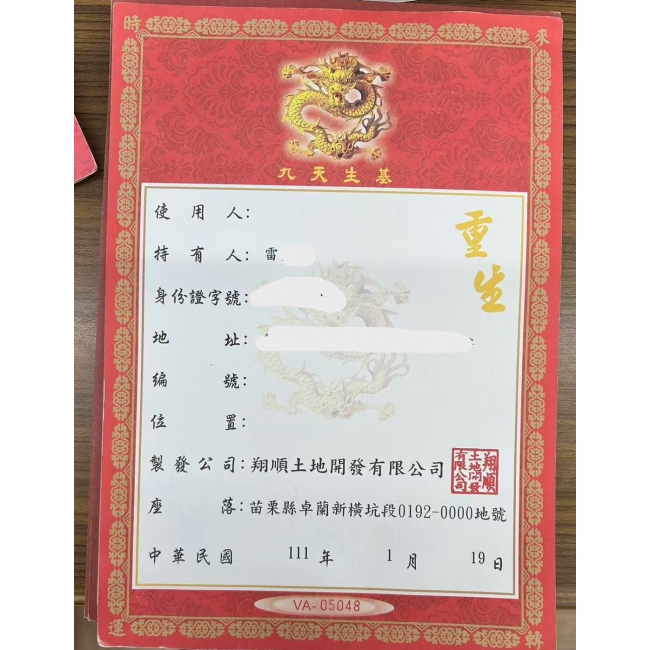 時來
九天生基
重生
使用人：
持有人：雷
身份證字號：
地址：
編號：
位置：
製發公司：翔順土地開發有限公司
翔順土地開發有限公司
座落：苗栗縣卓蘭新橫坑段0192-0000地號
中華民國 111年 1月 19日
VA-05048
運轉